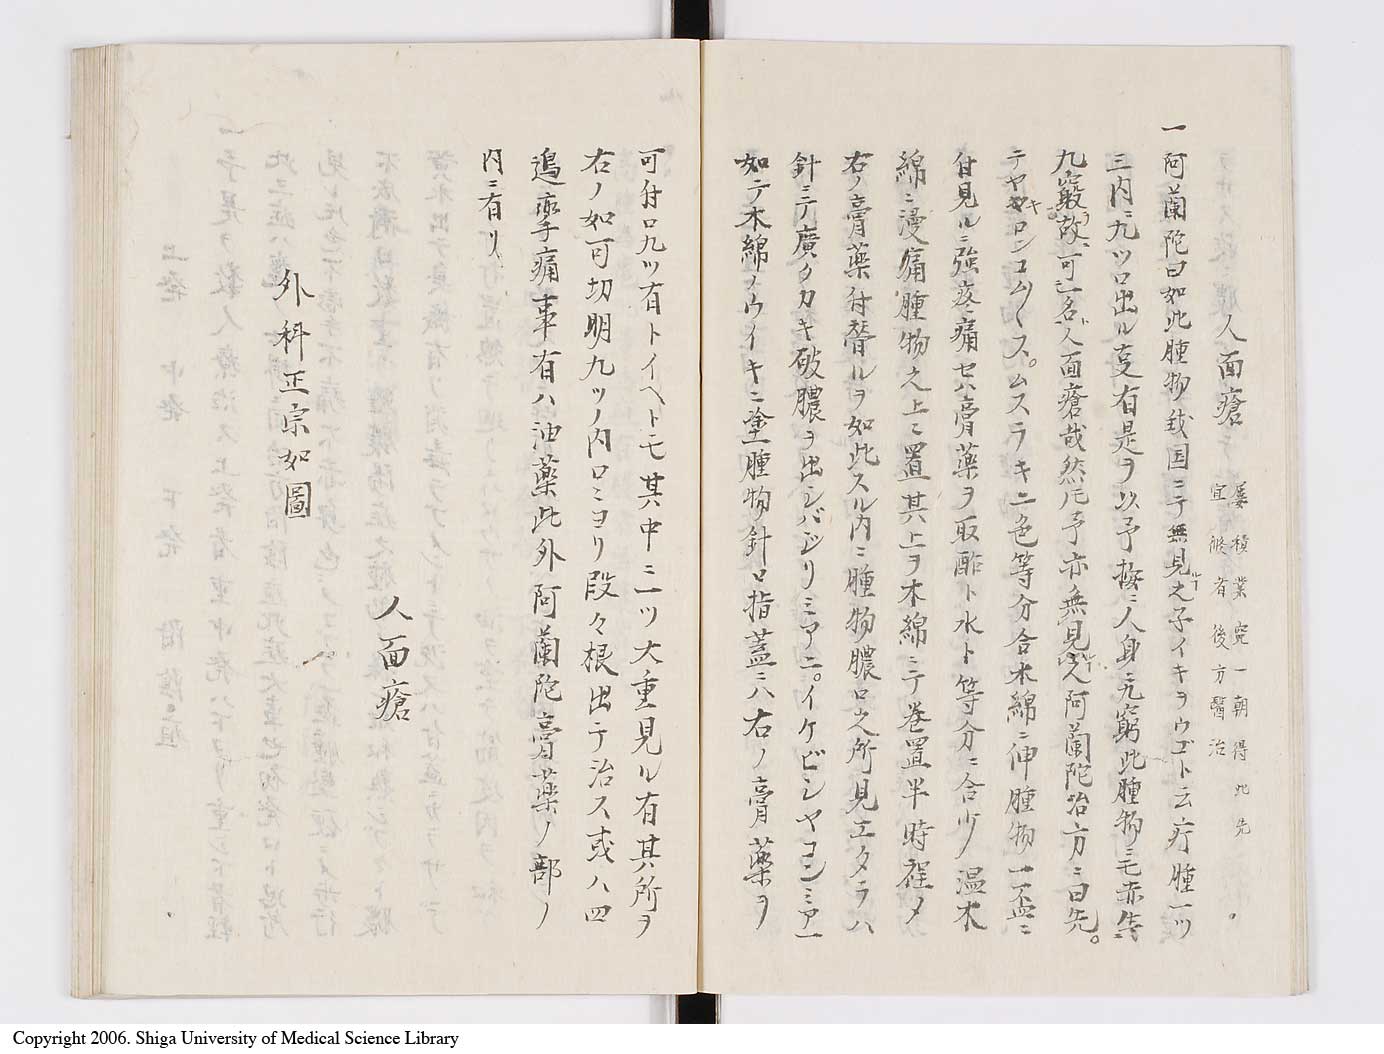 人面瘡
屢積業冤一朝得此先
宜懺 者後方醫治
一阿蘭陀曰如此腫物我国ニテ無見之子イキヲウゴト云疔腫一ツ
三内ニ九ツ口出ル有是ヲ以予按ニ人身ニ九竅此腫物ニモ亦
九竅故ニ可一名人面瘡哉然𪜈予亦無見人阿蘭陀治方ニ曰先。
テヤキロンコムス。ムスラキ二色等分合木綿ニ伸腫物一盃ニ
付見ルニ強疼痛セハ膏薬ヲ取酢ト水ト等分ニ合少ノ温木
綿ニ漫痛腫物之上ニ置其上ヲ木綿ニテ巻置半時程〆
右ノ膏薬付替ルヲ如此スル内ニ腫物膿口之所見エタラハ
針ニテ廣タカキ破膿ヲ出シバジリミアニ。イケビシヤコンミアー
如テ木綿ノウイキニ塗腫物針口指蓋ニハ右ノ膏薬ヲ
可付口九ツ有トイヘトモ其中ニ一ツ大重見ル有其所ヲ
右ノ如可切明九ツノ内口ミヨリ段々根出テ治ス或ハ四
邉攣痛事有ハ油薬此外阿蘭陀膏薬ノ部ノ
内ニ有リ
人面瘡
外科正宗如圖
Copyright 2006. Shiga University of Medical Science Library